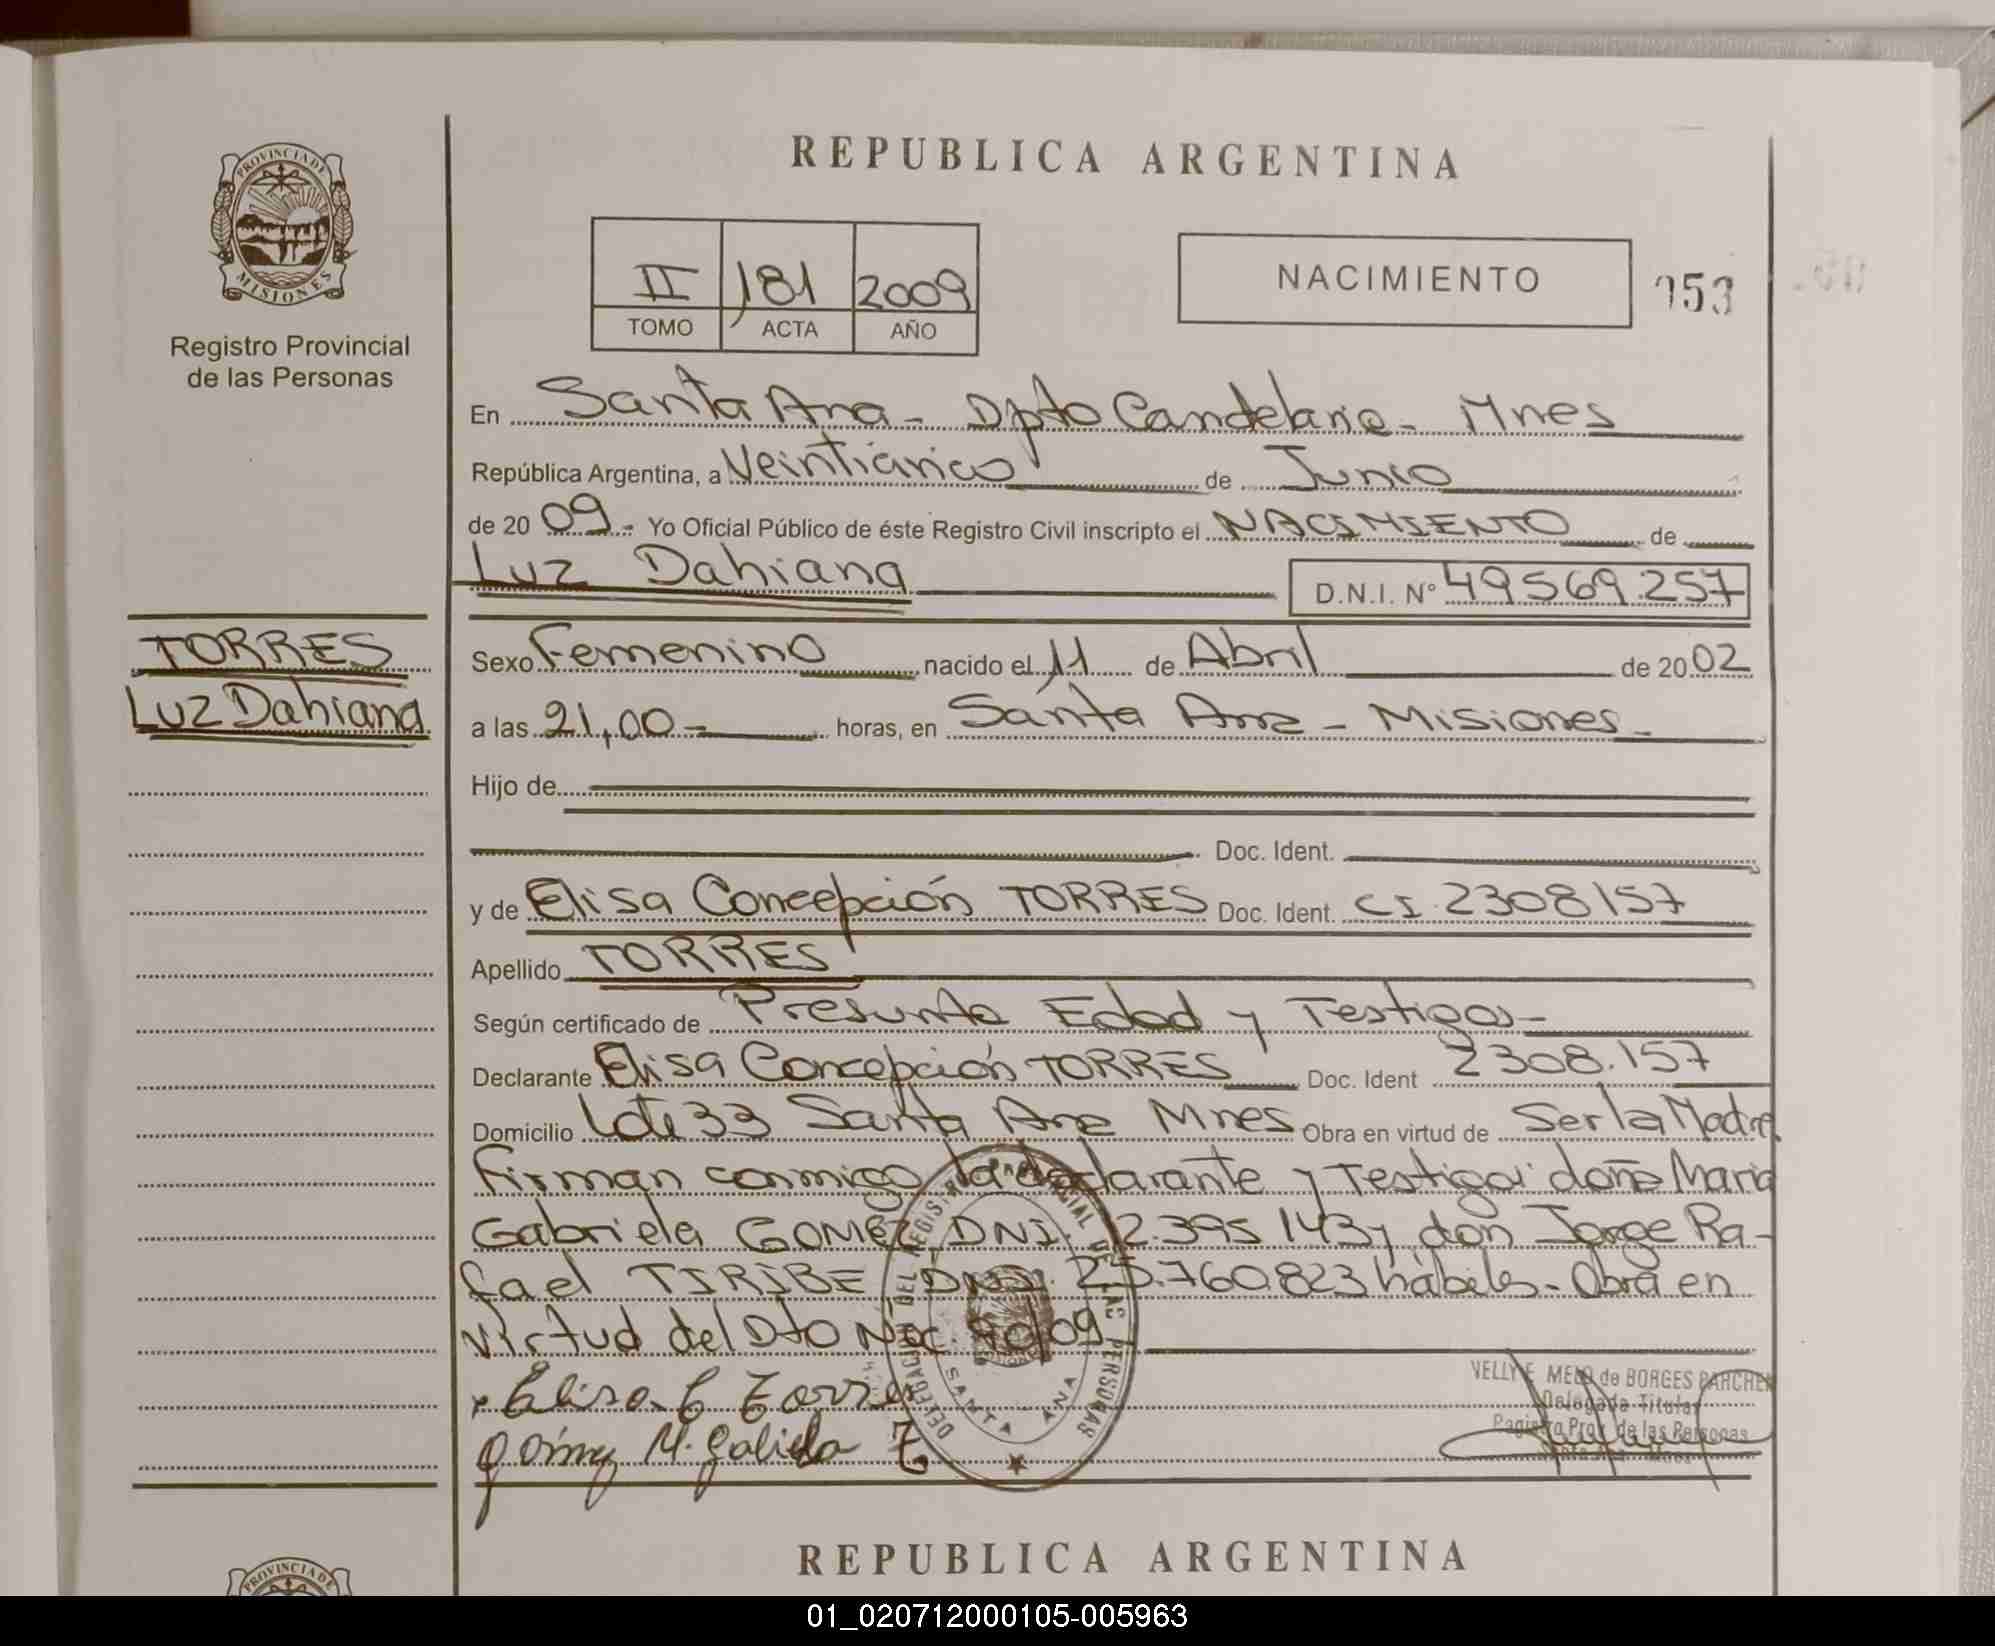 REPUBLICA ARGENTINA
PROVINCIA DE
MISIONES
Registro Provincial
de las Personas
II 181 2009
TOMO ACTA AÑO
NACIMIENTO
053
En Santa Ana - Dpto Candelaria - Mnes
República Argentina, a Veinticinco de Junio
de 2009.- Yo Oficial Público de éste Registro Civil inscripto el NACIMIENTO de
Luz Dahiana D.N.I. Nº 49569.257
TORRES
Luz Dahiana
Sexo Femenino nacido el 11 de Abril de 2002
a las 21,00- horas, en Santa Ana - Misiones -
Hijo de
Doc. Ident.
y de Elisa Concepción TORRES Doc. Ident. CI. 2308157
Apellido TORRES
Según certificado de Presunta Edad y Testigos-
Declarante Elisa Concepción TORRES Doc. Ident 2308.157
Domicilio Lote 33 Santa Ana Mnes Obra en virtud de Ser la Madre
Firman conmigo la declarante y Testigos: doña Maria
Gabriela GOMEZ DNI. 12.395 143 y don Jorge Ra-
fael TIRIBE DNI. 25.760.823 hábiles - Obra en
virtud del Dto Nac. 90/09
DELEGACION DEL REGISTRO PROVINCIAL DE LAS PERSONAS
SANTA ANA
Elisa C Torres
Gómez M. Gabriela
NELLY E. MELO de BORGES PARCHEN
Delegada Titular
Registro Prov. de las Personas
REPUBLICA ARGENTINA
PROVINCIA DE
01_020712000105-005963